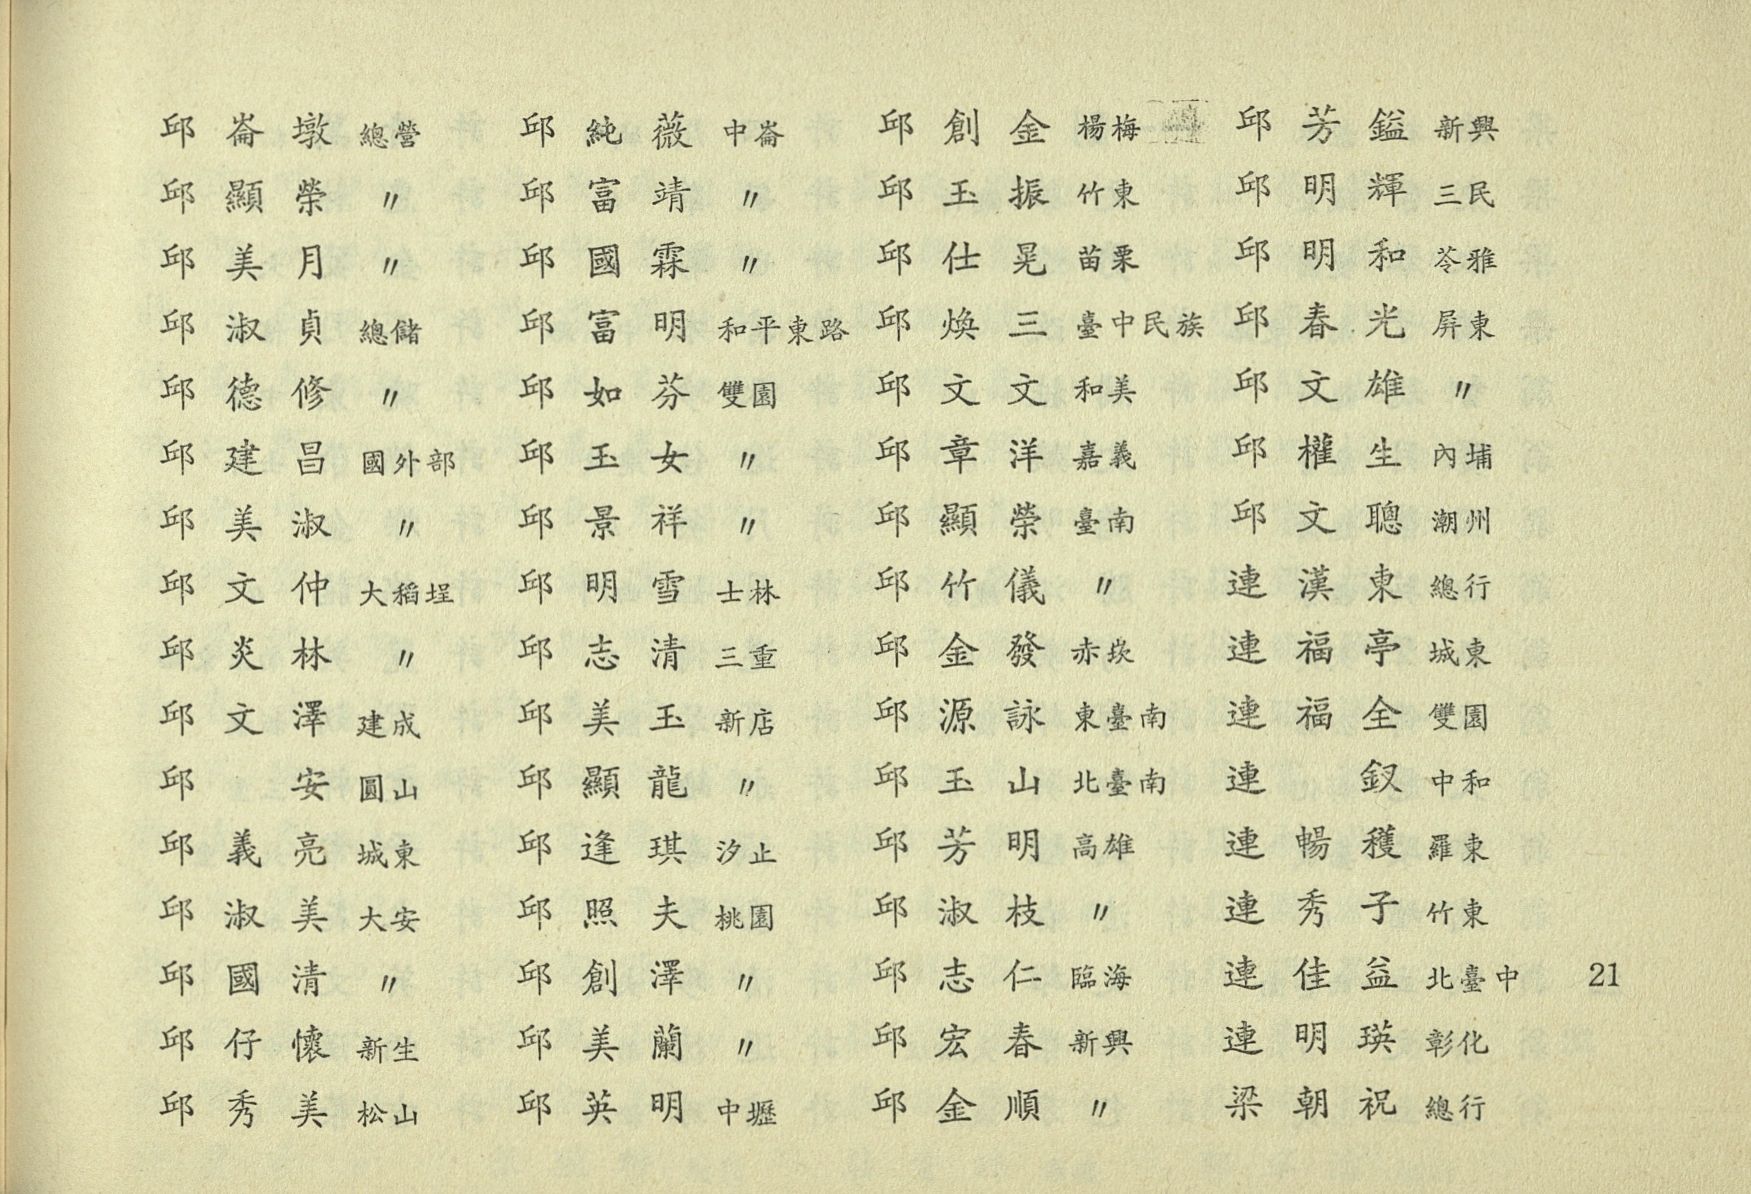 邱崙墩 總營
邱顯榮 〃
邱美月 〃
邱淑貞 總儲
邱德修 〃
邱建昌 國外部
邱美淑 〃
邱文仲 大稻埕
邱炎林 〃
邱文澤 建成
邱　安 圓山
邱義亮 城東
邱淑美 大安
邱國清 〃
邱仔懷 新生
邱秀美 松山
邱純薇 中崙
邱富靖 〃
邱國霖 〃
邱富明 和平東路
邱如芬 雙園
邱玉女 〃
邱景祥 〃
邱明雪 士林
邱志清 三重
邱美玉 新店
邱顯龍 〃
邱逢琪 汐止
邱照夫 桃園
邱創澤 〃
邱美蘭 〃
邱英明 中壢
邱創金 楊梅
邱玉振 竹東
邱仕晃 苗栗
邱煥三 臺中民族
邱文文 和美
邱章洋 嘉義
邱顯榮 臺南
邱竹儀 〃
邱金發 赤崁
邱源詠 東臺南
邱玉山 北臺南
邱芳明 高雄
邱淑枝 〃
邱志仁 臨海
邱宏春 新興
邱金順 〃
邱芳鎰 新興
邱明輝 三民
邱明和 苓雅
邱春光 屏東
邱文雄 〃
邱權生 內埔
邱文聰 潮州
連漢東 總行
連福亭 城東
連福全 雙園
連　釵 中和
連暢穫 羅東
連秀子 竹東
連佳益 北臺中
連明瑛 彰化
梁朝祝 總行
21